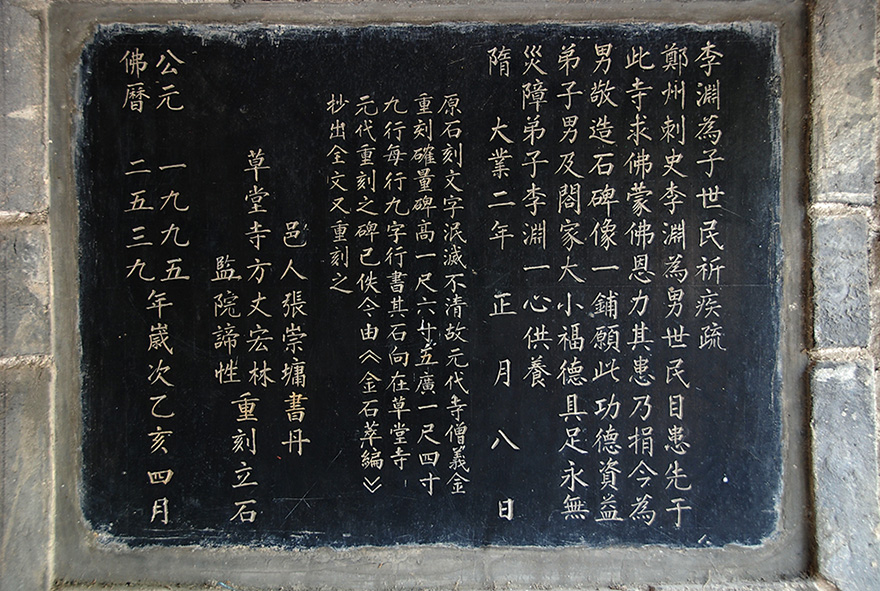 李淵為子世民祈疾疏
鄭州刺史李淵為男世民目患先于
此寺求佛蒙佛恩力其患乃捐今為
男敬造石碑像一鋪願此功德資益
弟子男及閤家大小福德具足永無
災障弟子李淵一心供養
隋大業二年正月八日
原石刻文字泯滅不清故元代寺僧義金
重刻確量碑高一尺六寸五廣一尺四寸
九行每行九字行書其石向在草堂寺
元代重刻之碑已佚今由《金石萃編》
抄出全文又重刻之
邑人張崇墉書丹
草堂寺方丈宏林
監院諦性
重刻立石
公元一九九五年歲次乙亥四月
佛曆二五三九